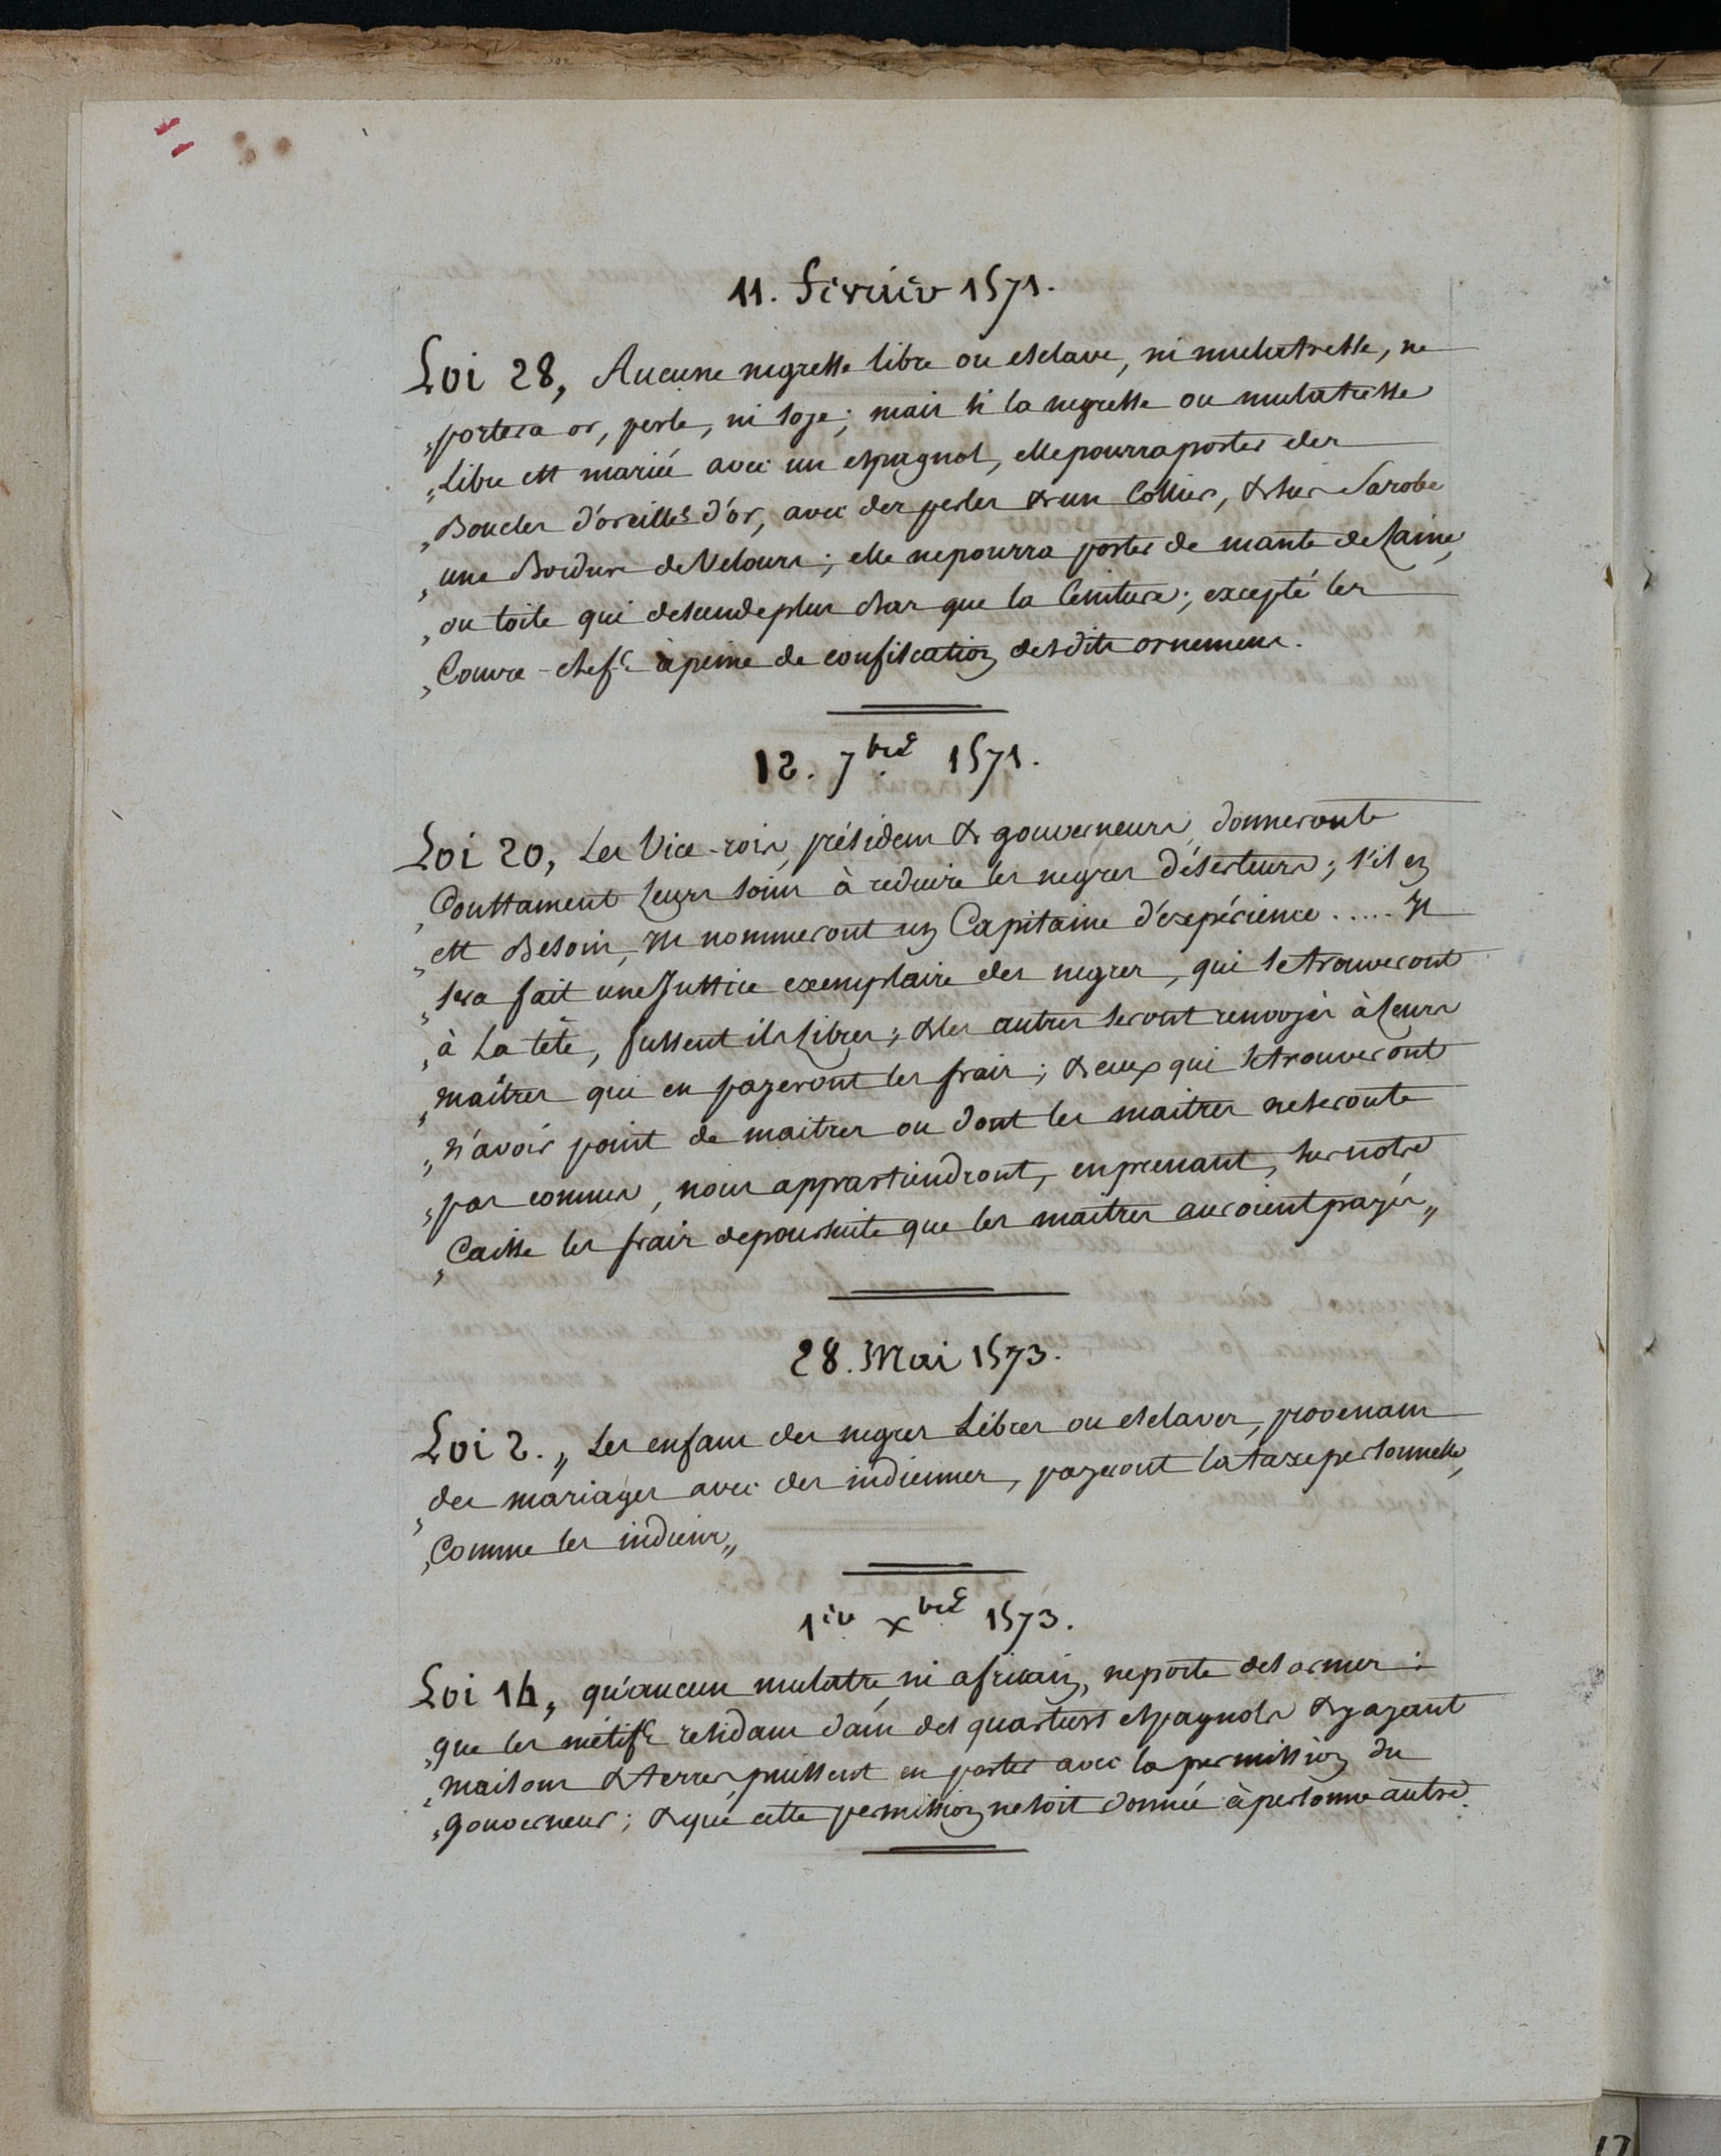 11. février 1571.
Loi 28, Aucune negresse libre ou esclave, ni mulatresse, ne
„portera or, perle, ni soye; mais si la negresse ou mulatresse
„Libre est mariée avec un espagnol, elle pourra porter des
„Boucles d'oreilles d'or, avec des perles & un Collier, & sur sa robe
„une Bordure de Velours; elle ne pourra porter de mante de Laine,
„ou toile qui descende plus bas que la Ceinture; excepté les
„Couvre-chefs à peine de confiscation desdits ornemens.
12. 7bre 1571.
Loi 20, Les Vice-rois, présidens & gouverneurs, donneront
„Constamment Leurs soins à reduire les negres déserteurs; s'il en
„est Besoin, ils nommeront un Capitaine d'expérience ..... Il
„sera fait une Justice exemplaire des negres, qui se trouveront
„à La tête, fussent ils Libres; & les autres seront renvoyés à Leurs
„maîtres qui en payeront les frais; & ceux qui se trouveront
„n'avoir point de maitres ou dont les maitres ne seront
„pas connus, nous appartiendront, en prenant, sur notre
„Caisse les frais de poursuite que les maîtres auroient payés„
28. Mai 1573.
Loi 2. „ Les enfans des negres Libres ou esclaves, provenans
„des mariages avec des indiennes, payeront la taxe personnelle,
„Comme les indiens„
1er Xbre 1573.
Loi 14, qu'aucun mulatre, ni africain, ne porte des armes:
„que les métifs residans dans des quartiers espagnols & y ayant
„maisons & terres, puissent en porter avec la permission du
„gouverneur; & que cette permission ne soit donnée à personne autre.
17